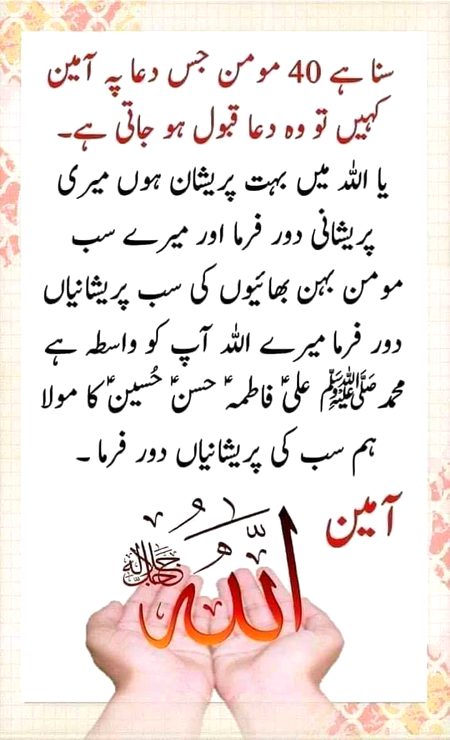 سنا ہے 40 مومن جس دعا پہ آمین
کہیں تو وہ دعا قبول ہو جاتی ہے۔
یا اللہ میں بہت پریشان ہوں میری
پریشانی دور فرما اور میرے سب
مومن بہن بھائیوں کی سب پریشانیاں
دور فرما میرے اللہ آپ کو واسطہ ہے
محمد ﷺ علیؑ فاطمہؑ حسنؑ حُسینؑ کا مولا
ہم سب کی پریشانیاں دور فرما۔
آمین
اللہ جل جلالہ